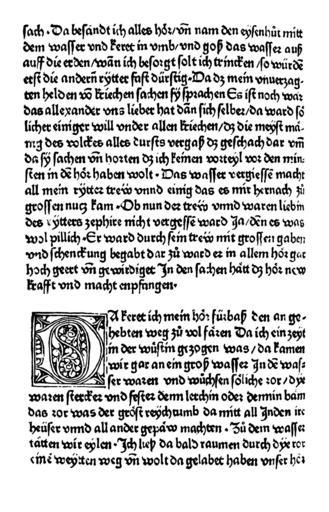 sach · Da besandt ich alles hör/vñ nam den eysenhůt mitt
dem wasser vnd keret in vmb/vnd goß das wasser auß
auff die erden/wãn ich besorgt solt ich trincken/so würde
erst die andern rytter fast dürstig · Da dz mein vnuerzag-
ten helden võ kriechen sachen sy sprachen Es ist noch war
das allexander vns lieber hat dãn sich selber/da ward sö
licher einiger will vnder allen kriechen/dz die meyst mä-
nig des volckes alles dursts vergaß dz geschach dar vm̃
da sy sachen vñ horten dz ich keinen vorteyl vor den min-
sten in dẽ hör haben wolt · Das wasser vergiessẽ macht
all mein rytter trew vnnd einig das es mir hernach zů
grossen nucz kam · Ob nun der trew vnnd waren liebin
des rytters zephire nicht vergessẽ ward Ja/den es was
wol pillich · Er ward durch sein trew mit grossen gaben
vnd schenckung begabt dar zů ward er in allem hör gar
hoch geert vñ gewirdiget In den sachen hätt dz hör new
krafft vnd macht enpfangen ·
DA keret ich mein hör fürbaß den an ge-
hebten weg zů vol faren Da ich ein zeyt
in der wüstin gezogen was/da kamen
wir gar an ein groß wasser In dẽ was-
ser waren vnd wůchsen söliche ror/dye
waren stercker vnd fester denn lerchin oder dennin bäm
das ror was der gröst reychtumb da mitt all Inden ire
heüser vnnd all ander gepäw machten · Zů dem wasser
tätten wir eylen · Ich ließ da bald raumen durch dye ror
einẽ weytten weg vñ wolt da gelabet haben vnser hör